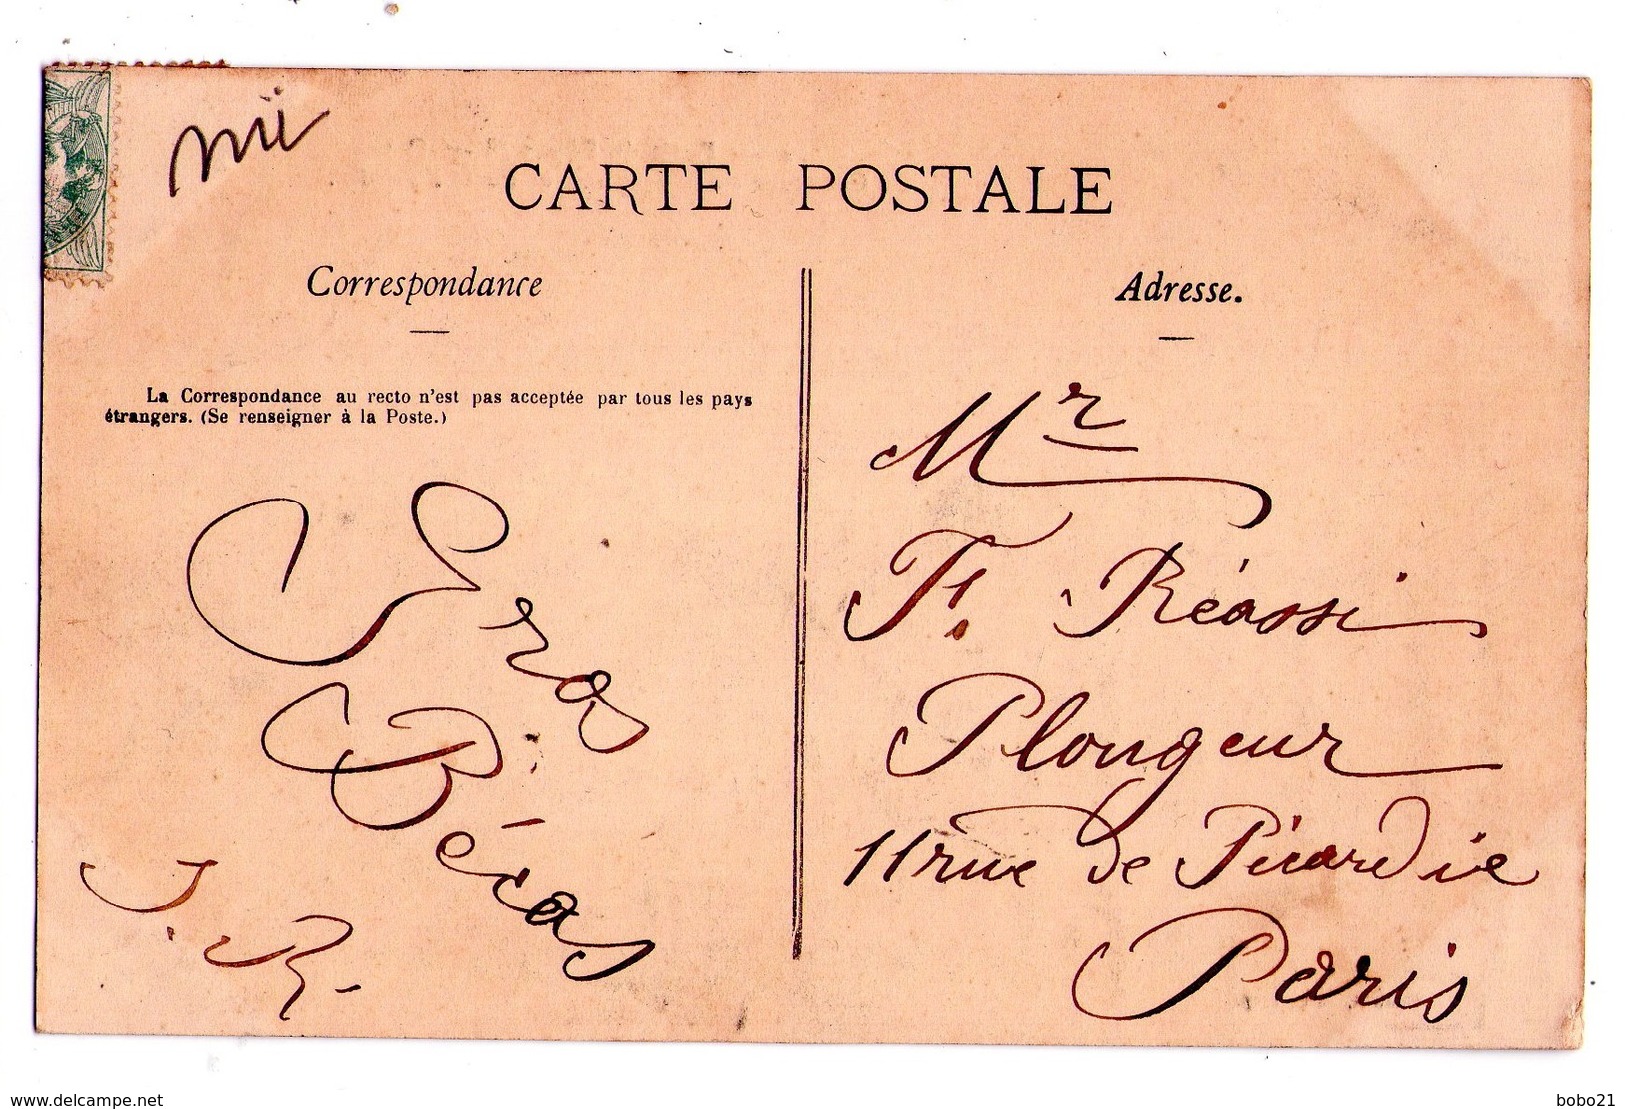 mii
CARTE POSTALE
Correspondance
La Correspondance au recto n'est pas acceptée par tous les pays
étrangers. (Se renseigner à la Poste.)
Gros
Bécas
J. R.
Adresse.
Mr
F. Réassi
Plongeur
11 rue de Picardie
Paris
www.delcampe.net
bobo21